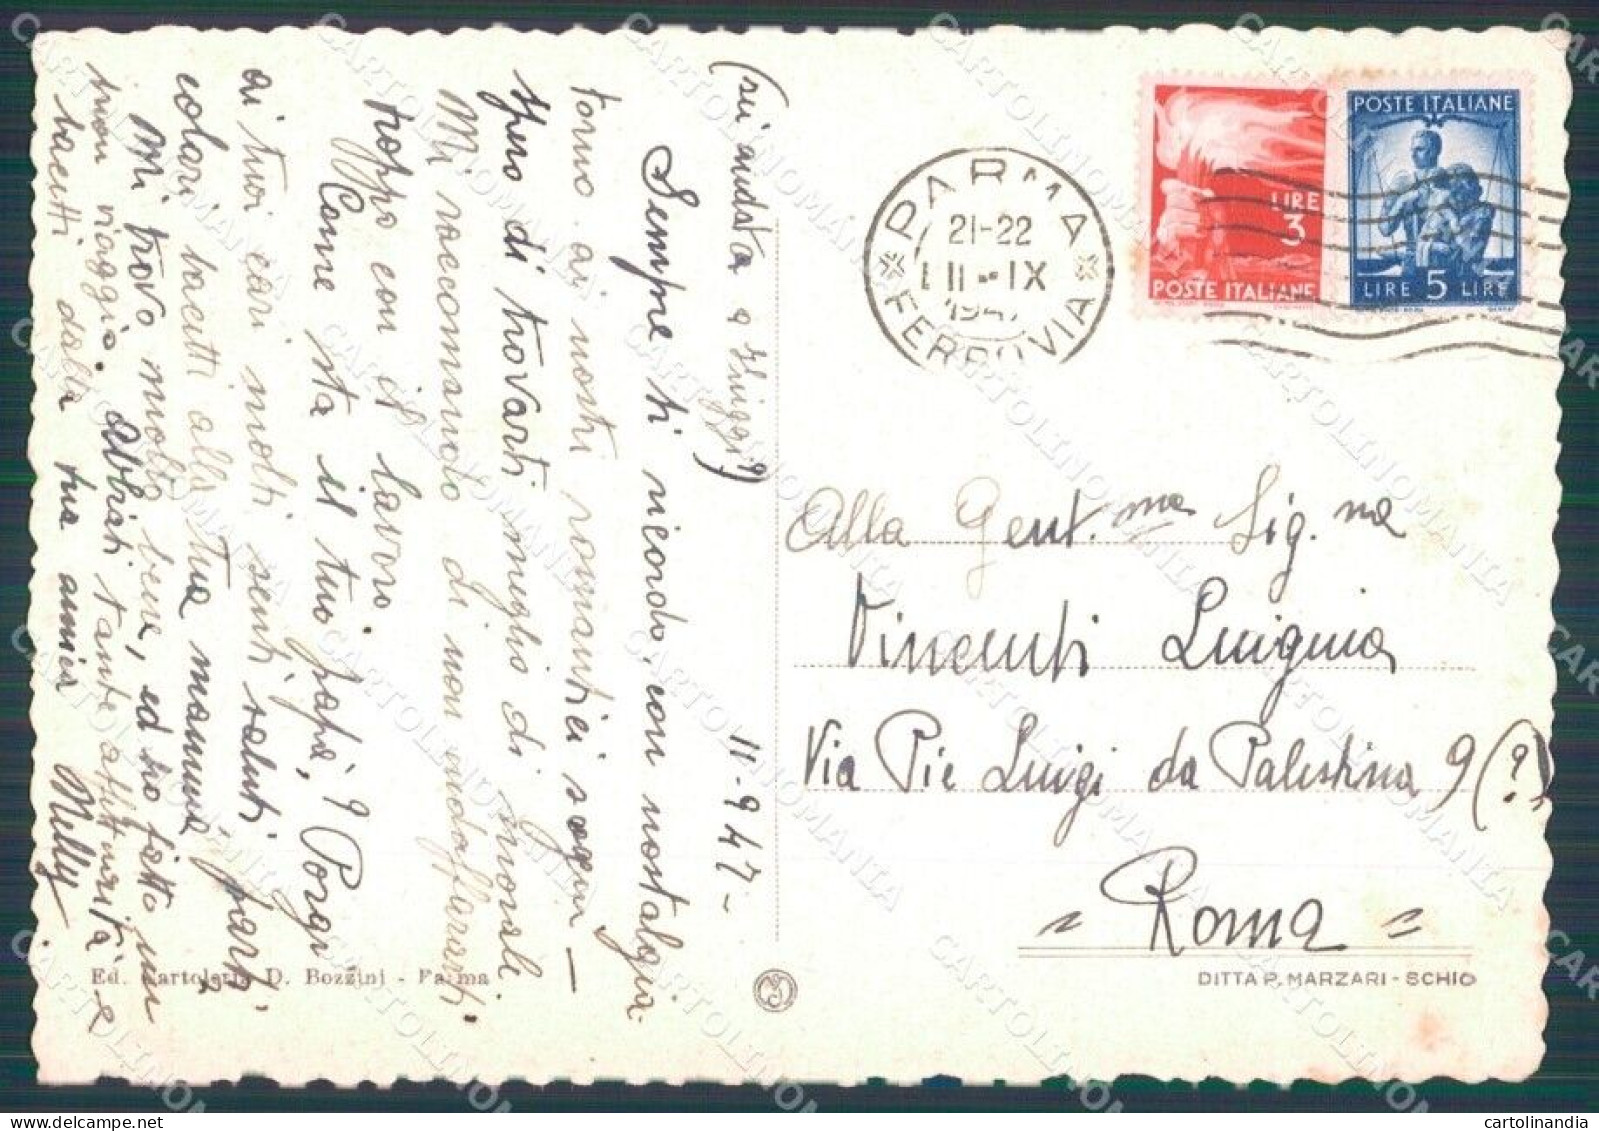 (sei andata a Fiuggi?)
11-9-47-
Sempre ti ricordo, con nostalgia
torno ai nostri romantici sogni -
Spero di trovarti meglio di morale.
Mi raccomando di non
troppo con il lavoro.
Come sta il tuo papà? Porgi
ai tuoi cari molti sentiti saluti,
bacetti alla tua mamma.
Mi trovo molto bene, ed ho fatto un
buon viaggio. Abbiti tante affettuosità e
bacetti dalla tua amica Nelly
PARMA
FERROVIA
21-22
11-IX
1947
LIRE
3
POSTE ITALIANE
POSTE ITALIANE
LIRE 5 LIRE
Alla Gent.ma Sig.na
Vincenti Luigina
Via Pie Luigi da Palestrina 9 (?)
Roma
Ed. Cartoleria D. Bozzini - Parma
DITTA P. MARZARI - SCHIO
CARTOLINOMANIA
cartolinandia